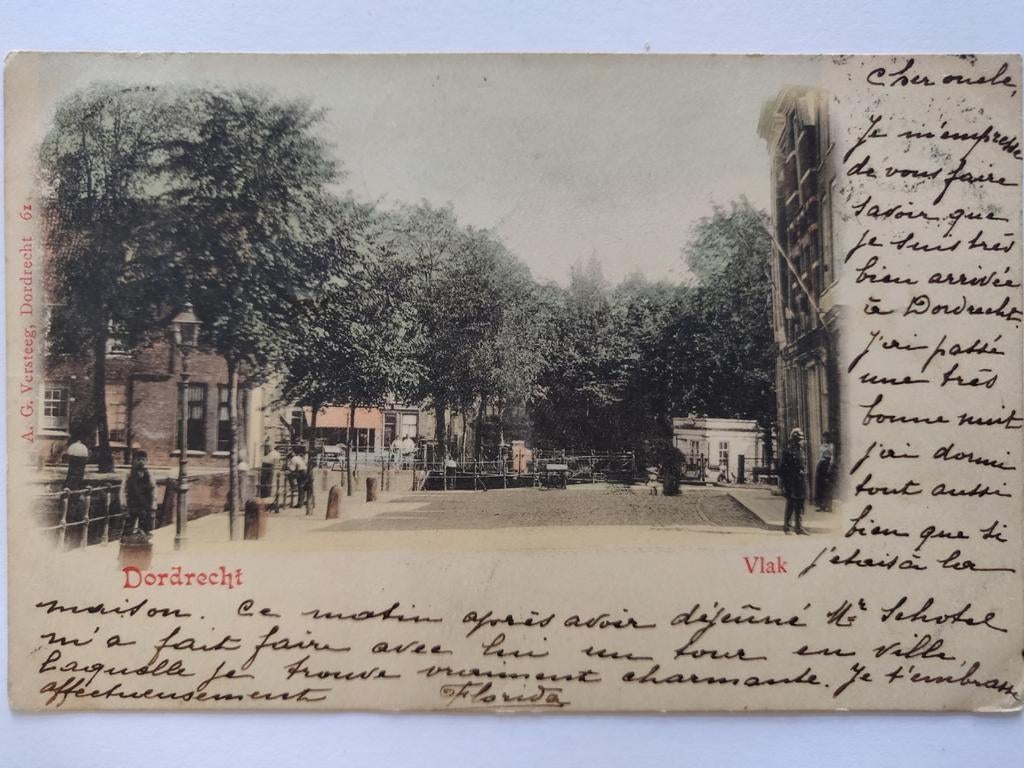 Cher oncle,
Je m'empresse
de vous faire
savoir que
je suis très
bien arrivée
à Dordrecht.
J'ai passée
une très
bonne nuit
j'ai dormi
tout aussi
bien que si
j'etais à la
maison. Ce matin après avoir déjeûné Mr Schotel
m'a fait faire avec lui un tour en ville,
laquelle je trouve vraiment charmante. Je t'embrasse
affectueusement Florida
Dordrecht
Vlak
A. G. Versteeg, Dordrecht 61